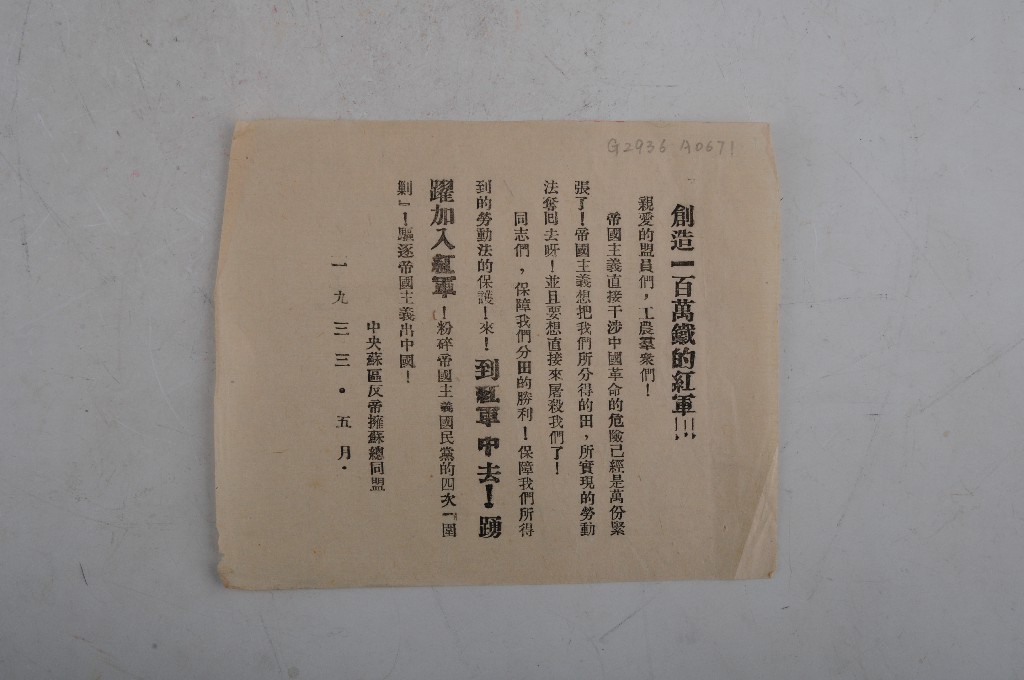 G2936 A0671
創造一百萬鐵的紅軍!!!
親愛的盟員們，工農羣衆們！
帝國主義直接干涉中國革命的危險已經是萬份緊
張了！帝國主義想把我們所分得的田，所實現的勞動
法奪囘去呀！並且要想直接來屠殺我們了！
同志們，保障我們分田的勝利！保障我們所得
到的勞動法的保護！來！到紅軍中去！踴
躍加入紅軍！粉碎帝國主義國民黨的四次『圍
剿』！驅逐帝國主義出中國！
中央蘇區反帝擁蘇總同盟
一九三三．五月．